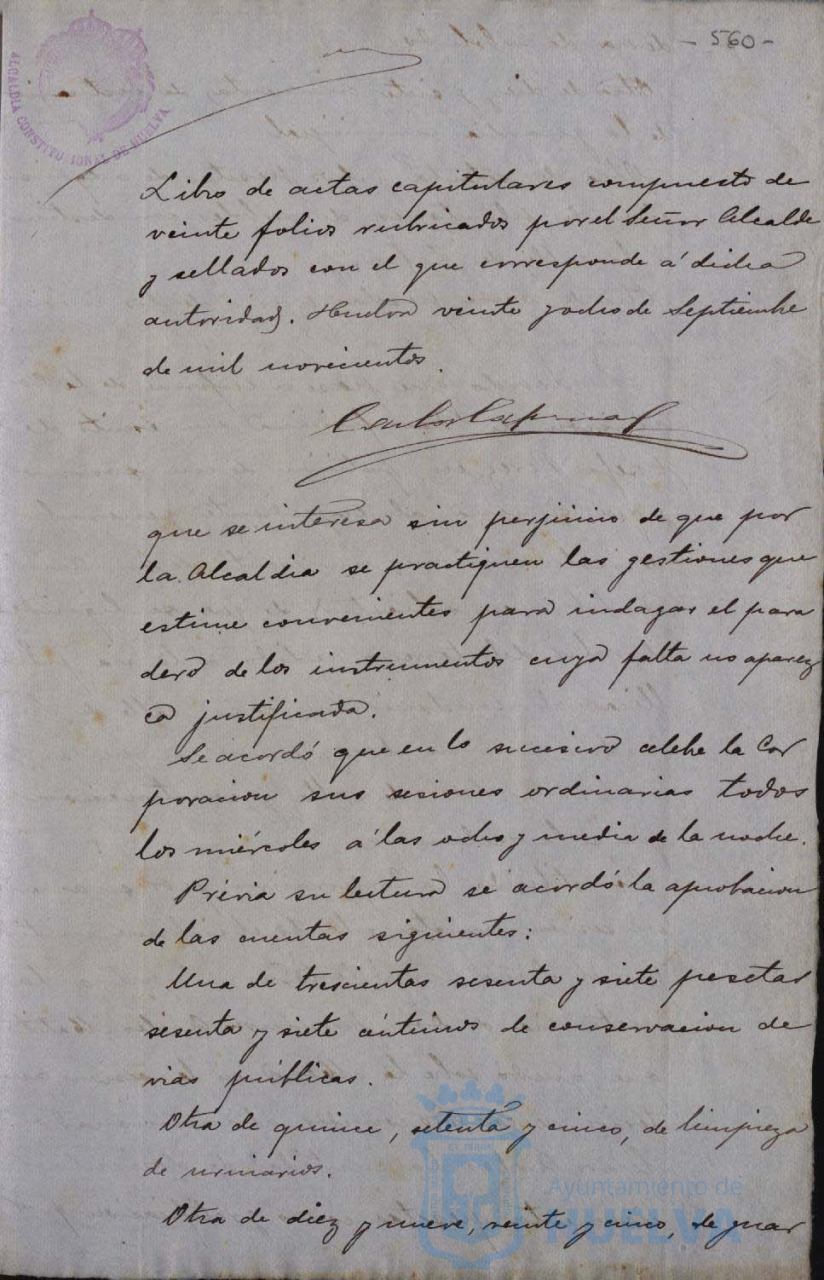 - 560 -
ALCALDIA CONSTITUCIONAL DE HUELVA
Libro de actas capitulares compuesto de
veinte folios rubricados por el Señor Alcalde
y sellados con el que corresponde á dicha
autoridad. Huelva veinte y ocho de Septiembre
de mil novecientos.
Carlos
que se interesa sin perjuicio de que por
la Alcaldia se practiquen las gestiones que
estime convenientes para indagar el para
dero de los instrumentos cuya falta no aparez
ca justificada.
Se acordó que en lo sucesivo celebe la Cor
poracion sus sesiones ordinarias todos
los miércoles á las ocho y media de la noche.
Prévia su lectura se acordó la aprobacion
de las cuentas siguientes:
Una de trescientas sesenta y siete pesetas
sesenta y siete céntimos de conservacion de
vias públicas.
Otra de quince, setenta y cinco, de limpieza
de urinarios.
Otra de diez y nueve, veinte y cinco, de guar
Ayuntamiento de
HUELVA